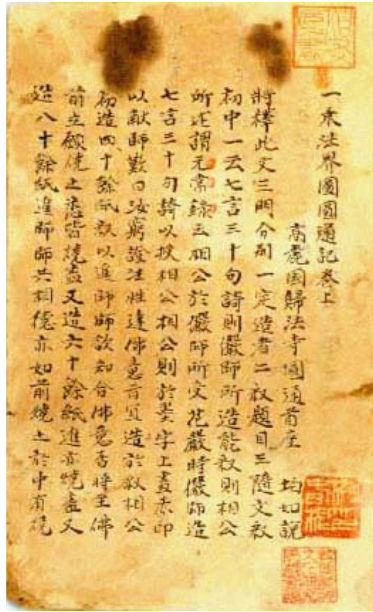 一乘法界圖圓通記卷上
高麗國歸法寺圓通首座 均如說
將釋此文三門分別一定造者二叙題目三隨文釋
初中一云七言三十句詩則儼師所造能叙則相公
所述謂元常錄云相公於儼師所受花嚴時儼師造
七言三十句詩以授相公相公則於墨字上畫赤印
以獻師歎曰汝窮證法性達佛意旨宜造於叙相公
初造四十餘紙叙以進師師欲知合佛意否將至佛
前立願燒之悉皆燒盡又造六十餘紙進亦燒盡又
造八十餘紙進師師共相德亦如前燒之於中有燒